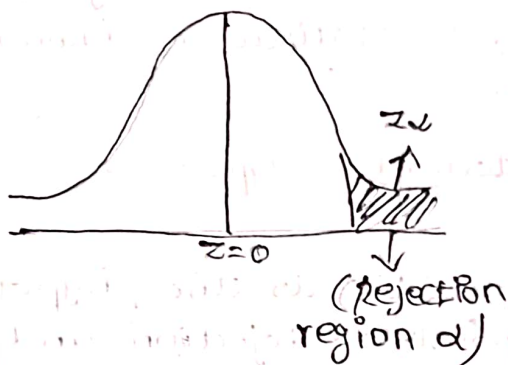 zα
z=0
(Rejection
region α)